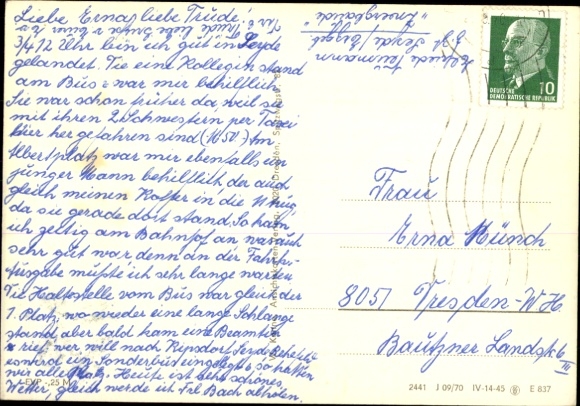 Liebe Erna, liebe Trude!
3/4 12 Uhr bin ich gut in Seyde
gelandet. Die eine Kollegin stand
am Bus u. war mir behilflich.
Sie war schon früher da, weil sie
mit ihren 2 Schwestern per Taxi
hier her gefahren sind (16,50). Am
Albertplatz war mir ebenfalls ein
junger Mann behilflich, der auch
gleich meinen Koffer in die
da sie gerade dort stand. So kam
ich zeitig am Bahnhof an, was auch
sehr gut war, denn an der Fahrk.-
Ausgabe mußte ich sehr lange warten
Die Haltestelle vom Bus war gleich der
1. Platz, wo wieder eine lange Schlange
stand, aber bald kam eine Beamtin
u. rief wer will nach Kipsdorf, Seyde
ein Sonderbus eingelegt u. so hatten
wir alle Platz. Heute ist sehr schönes
Wetter, gleich werde ich Frl. Bach abholen.
Elfriede
z. Zt. Seyde
DEUTSCHE
DEMOKRATISCHE REPUBLIK
10
Frau
Erna Münch
8051 Dresden-W.H.
Bautzner Landstr. 6
III
EVP -,25 M
2441 J 09/70 IV-14-45 E 837